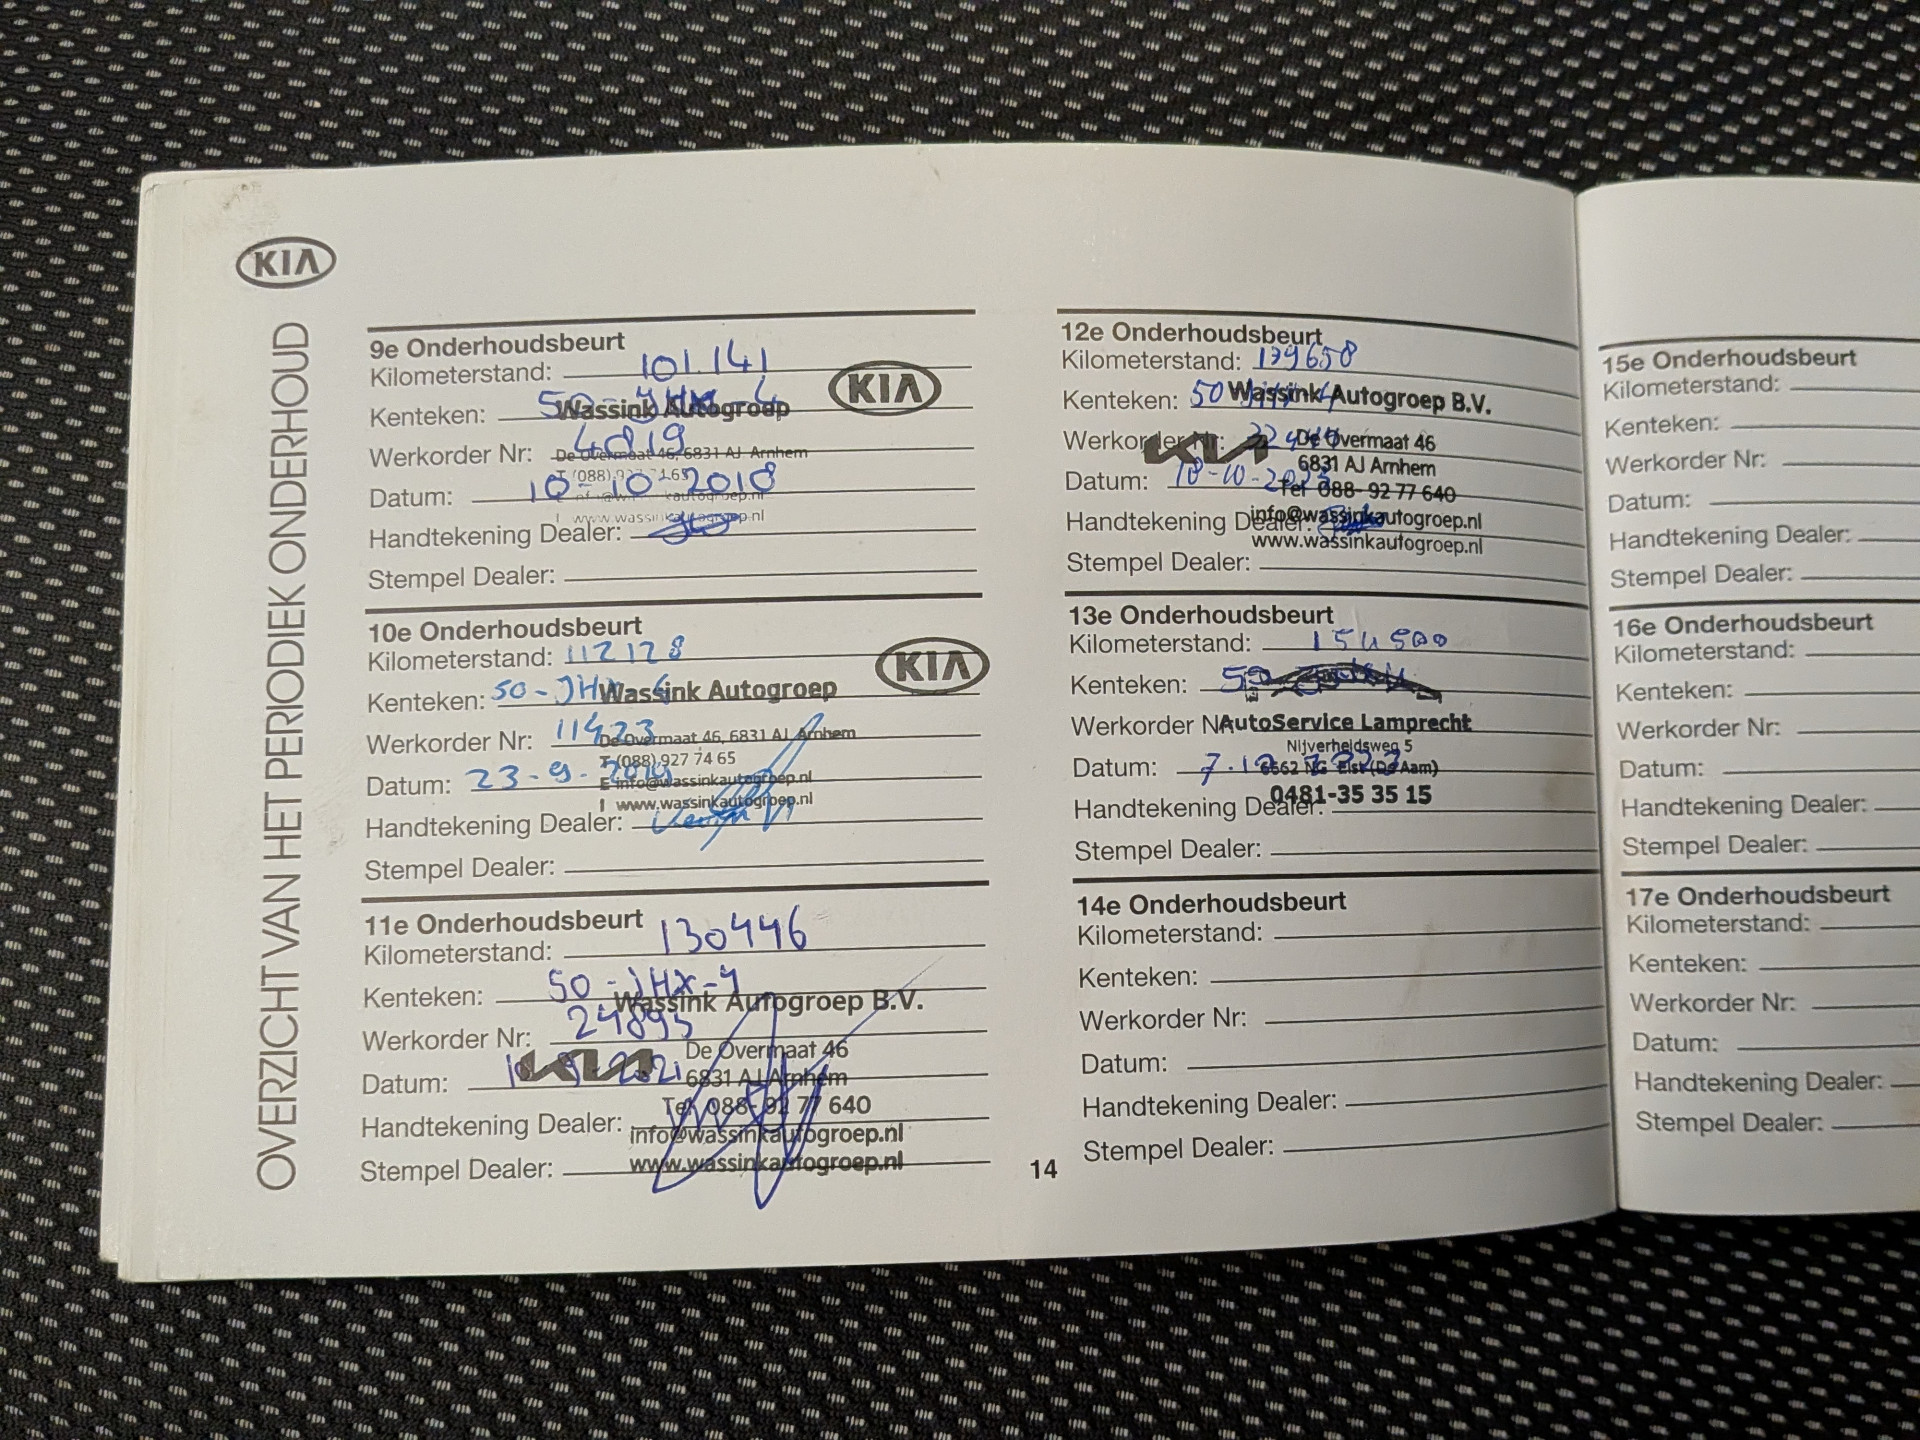 KIA
OVERZICHT VAN HET PERIODIEK ONDERHOUD
9e Onderhoudsbeurt
Kilometerstand: 101.141
KIA
Kenteken: 50-JHX-4
Wassink Autogroep
Werkorder Nr: 4819
De Overmaat 46, 6831 AJ Arnhem
T (088) 927 74 65
Datum: 10-10-2018
www.wassinkautogroep.nl
Handtekening Dealer:
Stempel Dealer:
10e Onderhoudsbeurt
Kilometerstand: 112128
KIA
Kenteken: 50-JHX-4
Wassink Autogroep
Werkorder Nr: 11423
De Overmaat 46, 6831 AJ Arnhem
T (088) 927 74 65
Datum: 23-9-2019
E info@wassinkautogroep.nl
I www.wassinkautogroep.nl
Handtekening Dealer:
Stempel Dealer:
11e Onderhoudsbeurt
Kilometerstand: 130446
Kenteken: 50-JHX-4
Wassink Autogroep B.V.
Werkorder Nr: 24895
De Overmaat 46
KIA
Datum: 9-2021
6831 AJ Arnhem
Tel 088- 92 77 640
Handtekening Dealer:
info@wassinkautogroep.nl
Stempel Dealer:
www.wassinkautogroep.nl
14
12e Onderhoudsbeurt
Kilometerstand: 139658
Kenteken: 50
Wassink Autogroep B.V.
Werkorder Nr:
De Overmaat 46
KIA
6831 AJ Arnhem
Datum: 18-10-
Tel 088- 92 77 640
Handtekening Dealer:
info@wassinkautogroep.nl
www.wassinkautogroep.nl
Stempel Dealer:
13e Onderhoudsbeurt
Kilometerstand: 154500
Kenteken: 50
Werkorder Nr:
AutoService Lamprecht
Nijverheidsweg 5
Datum: 7.12
6662 NG Elst (De Aam)
0481-35 35 15
Handtekening Dealer:
Stempel Dealer:
14e Onderhoudsbeurt
Kilometerstand:
Kenteken:
Werkorder Nr:
Datum:
Handtekening Dealer:
Stempel Dealer:
15e Onderhoudsbeurt
Kilometerstand:
Kenteken:
Werkorder Nr:
Datum:
Handtekening Dealer:
Stempel Dealer:
16e Onderhoudsbeurt
Kilometerstand:
Kenteken:
Werkorder Nr:
Datum:
Handtekening Dealer:
Stempel Dealer:
17e Onderhoudsbeurt
Kilometerstand:
Kenteken:
Werkorder Nr:
Datum:
Handtekening Dealer:
Stempel Dealer: